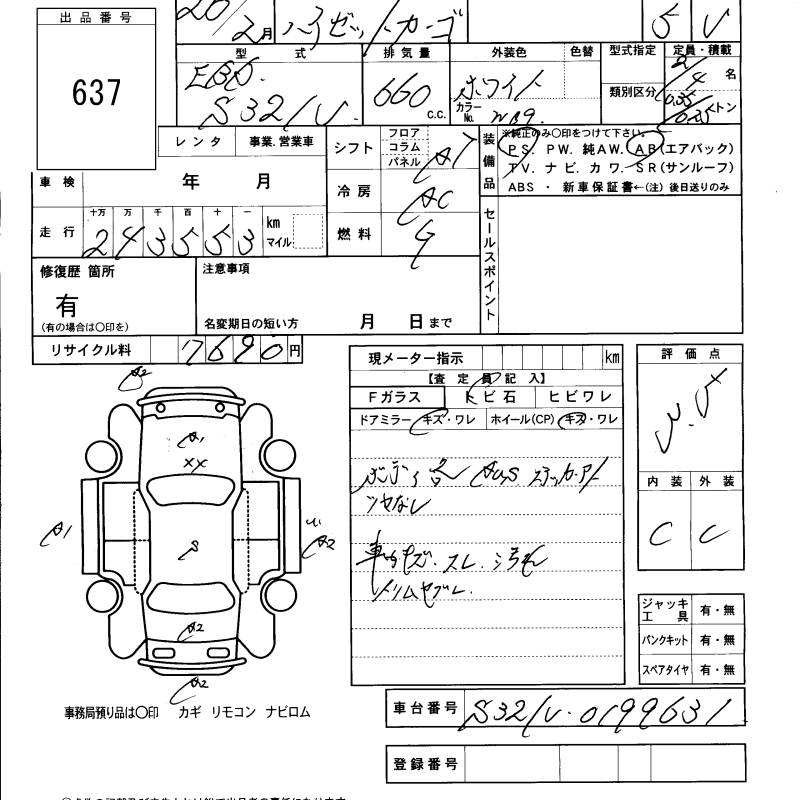 出品番号
637
20/2月 ハイゼットカーゴ 5 V
型式 排気量 外装色 色替 型式指定 定員・積載
EBD. 660 c.c. ホワイト 類別区分 2/4 名
S321V. カラーNo. W09. 0.35/0.25 トン
レンタ 事業.営業車
シフト フロア コラム パネル AT
装備品 ※純正のみ〇印をつけて下さい。
PS. PW. 純AW. AB(エアバック)
TV. ナビ. カワ. SR(サンルーフ)
ABS ・ 新車保証書←(注) 後日送りのみ
車検 年 月
冷房 AC
走行 十万 万 千 百 十 一 km マイル
243553
燃料 G
セールスポイント
修復歴 箇所
有
(有の場合は〇印を)
注意事項
名変期日の短い方 月 日まで
リサイクル料 7690円
現メーター指示 km
【査定員記入】
Fガラス トビ石 ヒビワレ
ドアミラー キズ・ワレ ホイール(CP) キズ・ワレ
評価点
内装 外装
C C
A2
A1
XX
A1
A2
A2
A2
ボディ各 AUS ステッカーアト
ツヤなし
車内キズ.スレ.汚れ
ジャッキ工具 有・無
パンクキット 有・無
スペアタイヤ 有・無
事務局預り品は〇印 カギ リモコン ナビロム
車台番号 S321V-0199631
登録番号